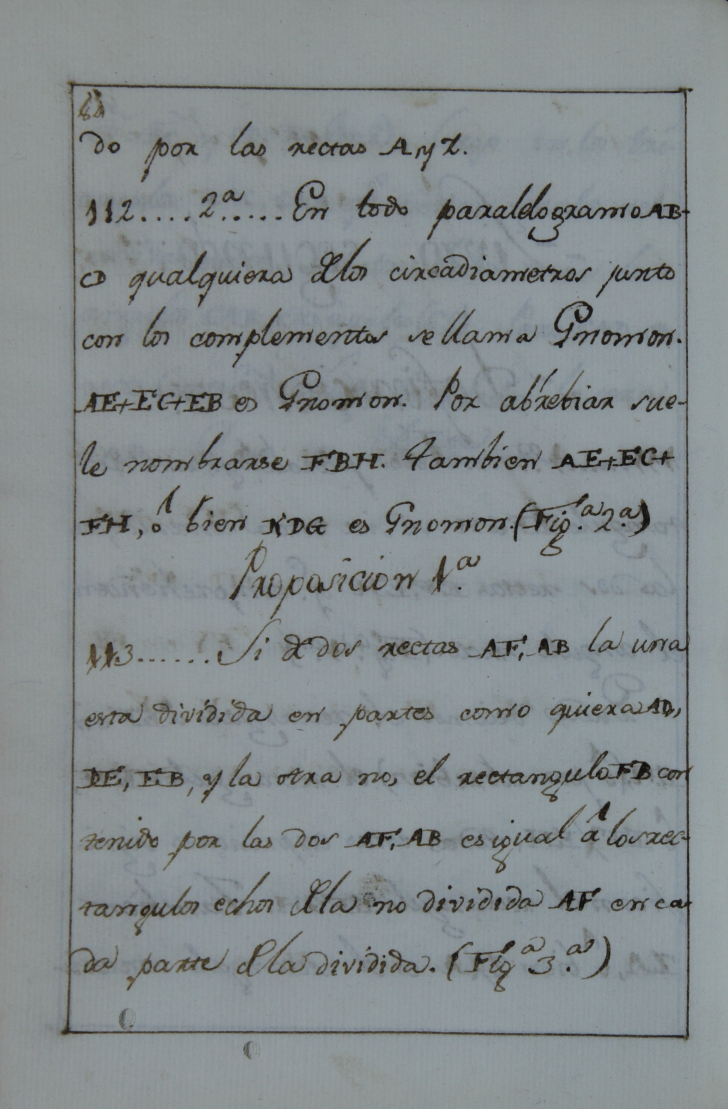 84
do por las rectas A y Z.
112....2ª.....En todo paralelogramo AB-
CD qualquiera dlos circadiametros junto
con los complementos se llama Gnomon.
AE+EC+EB es Gnomon. Por abrebiar sue-
le nombrarse FBH. Tambien AE+EC+
FH, ó bien KDG es Gnomon. (Figª. 2ª.)
Proposicion 1ª.
113......Si d dos rectas AF, AB la una
esta dividida en partes como quiera AD,
DE, EB, y la otra no, el rectangulo FB con
tenido por las dos AF, AB es igual á los rec-
tangulos echos dla no dividida AF en ca
da parte dla dividida. (Figª 3ª.)